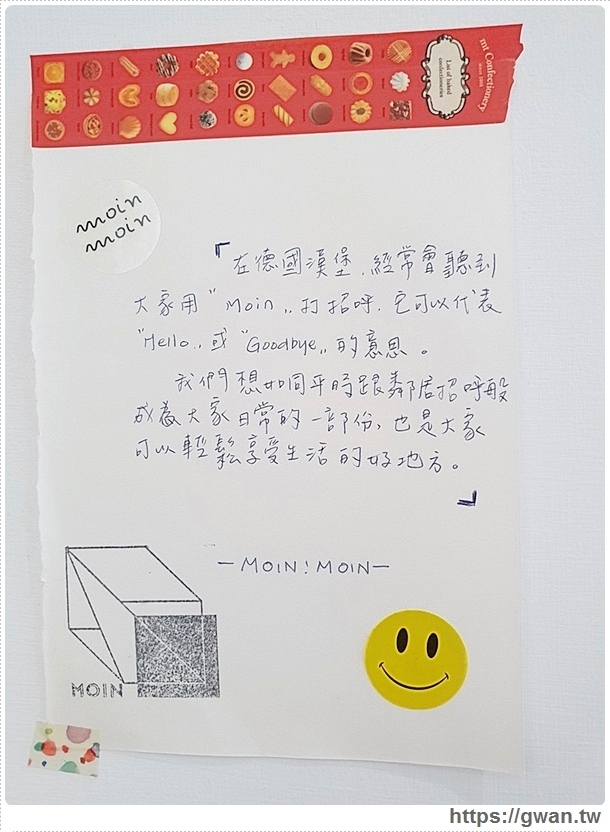 mt Confectionery
since 2008
List of baked
confectioneries
moin
moin
「在德國漢堡,經常會聽到
大家用"Moin"打招呼,它可以代表
"Hello"或"Goodbye"的意思。
我們想如同平時跟鄰居招呼般
成為大家日常的一部份,也是大家
可以輕鬆享受生活的好地方。
」
—MOIN!MOIN—
MOIN
https://gwan.tw